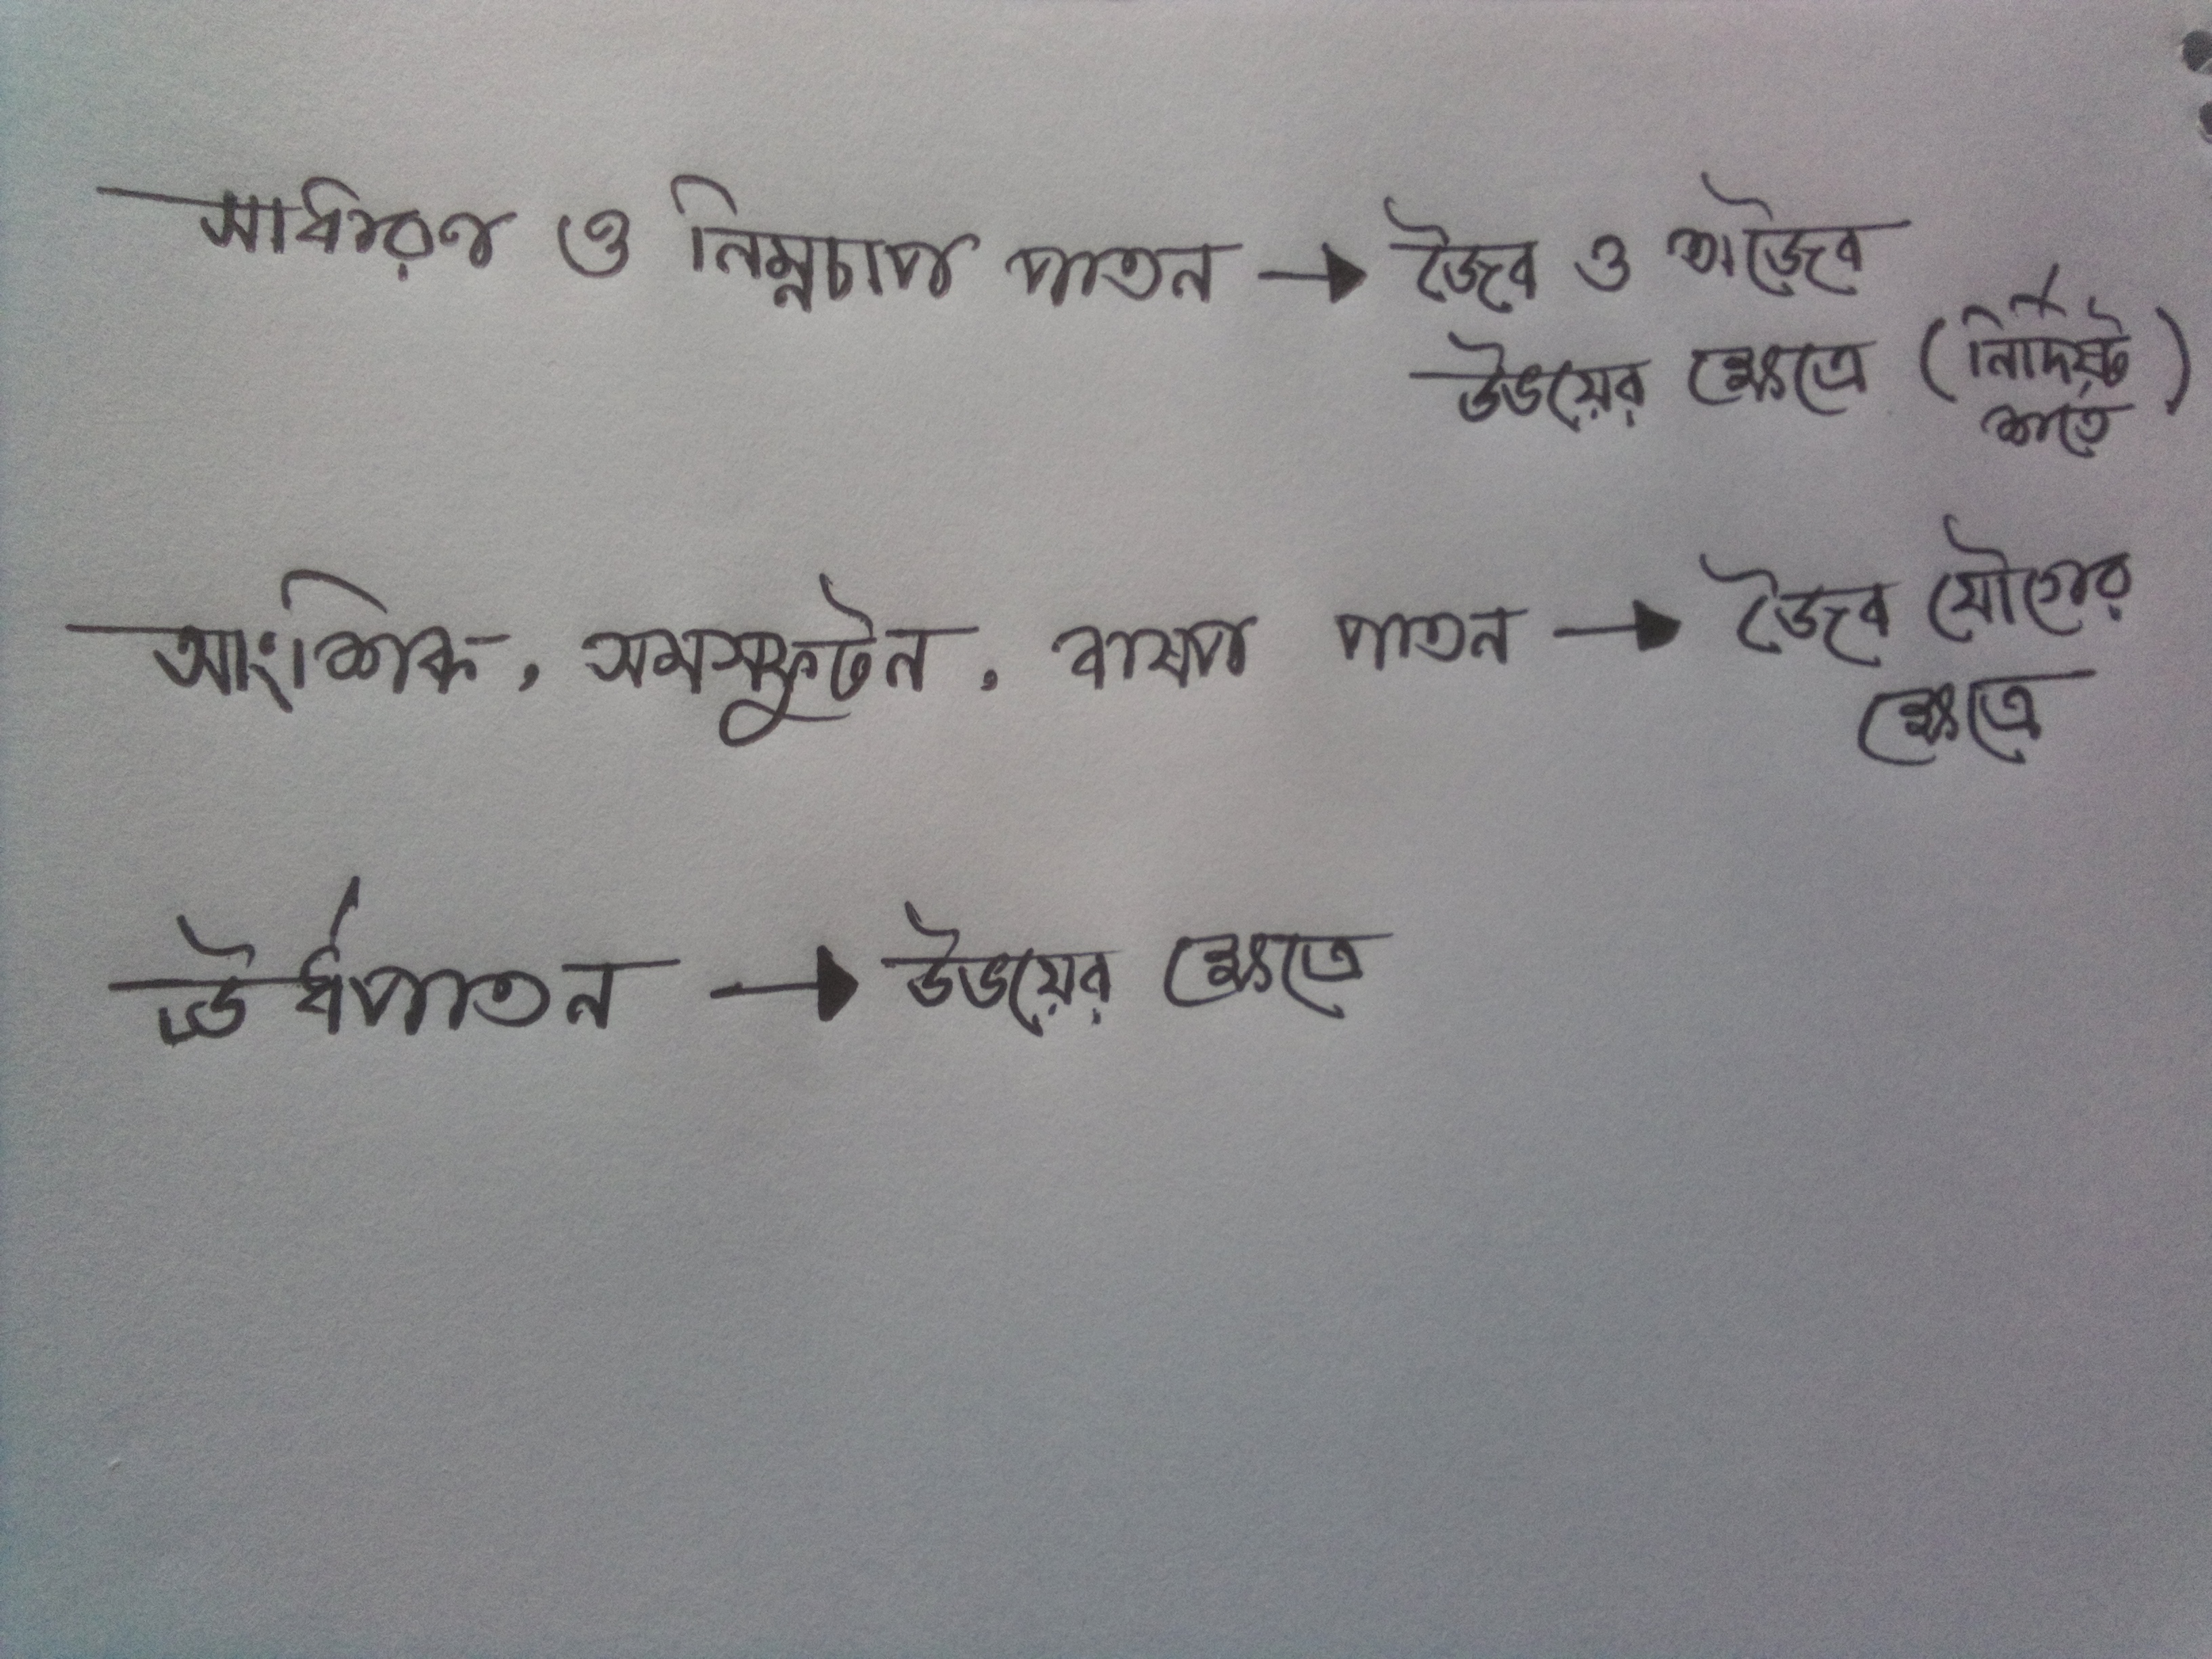 সাধারণ ও নিম্নচাপ পাতন → জৈব ও অজৈব
উভয়ের ক্ষেত্রে (নির্দিষ্ট
শর্তে)
আংশিক, সমস্ফুটন, বাষ্প পাতন → জৈব যৌগের
ক্ষেত্রে
উর্ধপাতন → উভয়ের ক্ষেত্রে